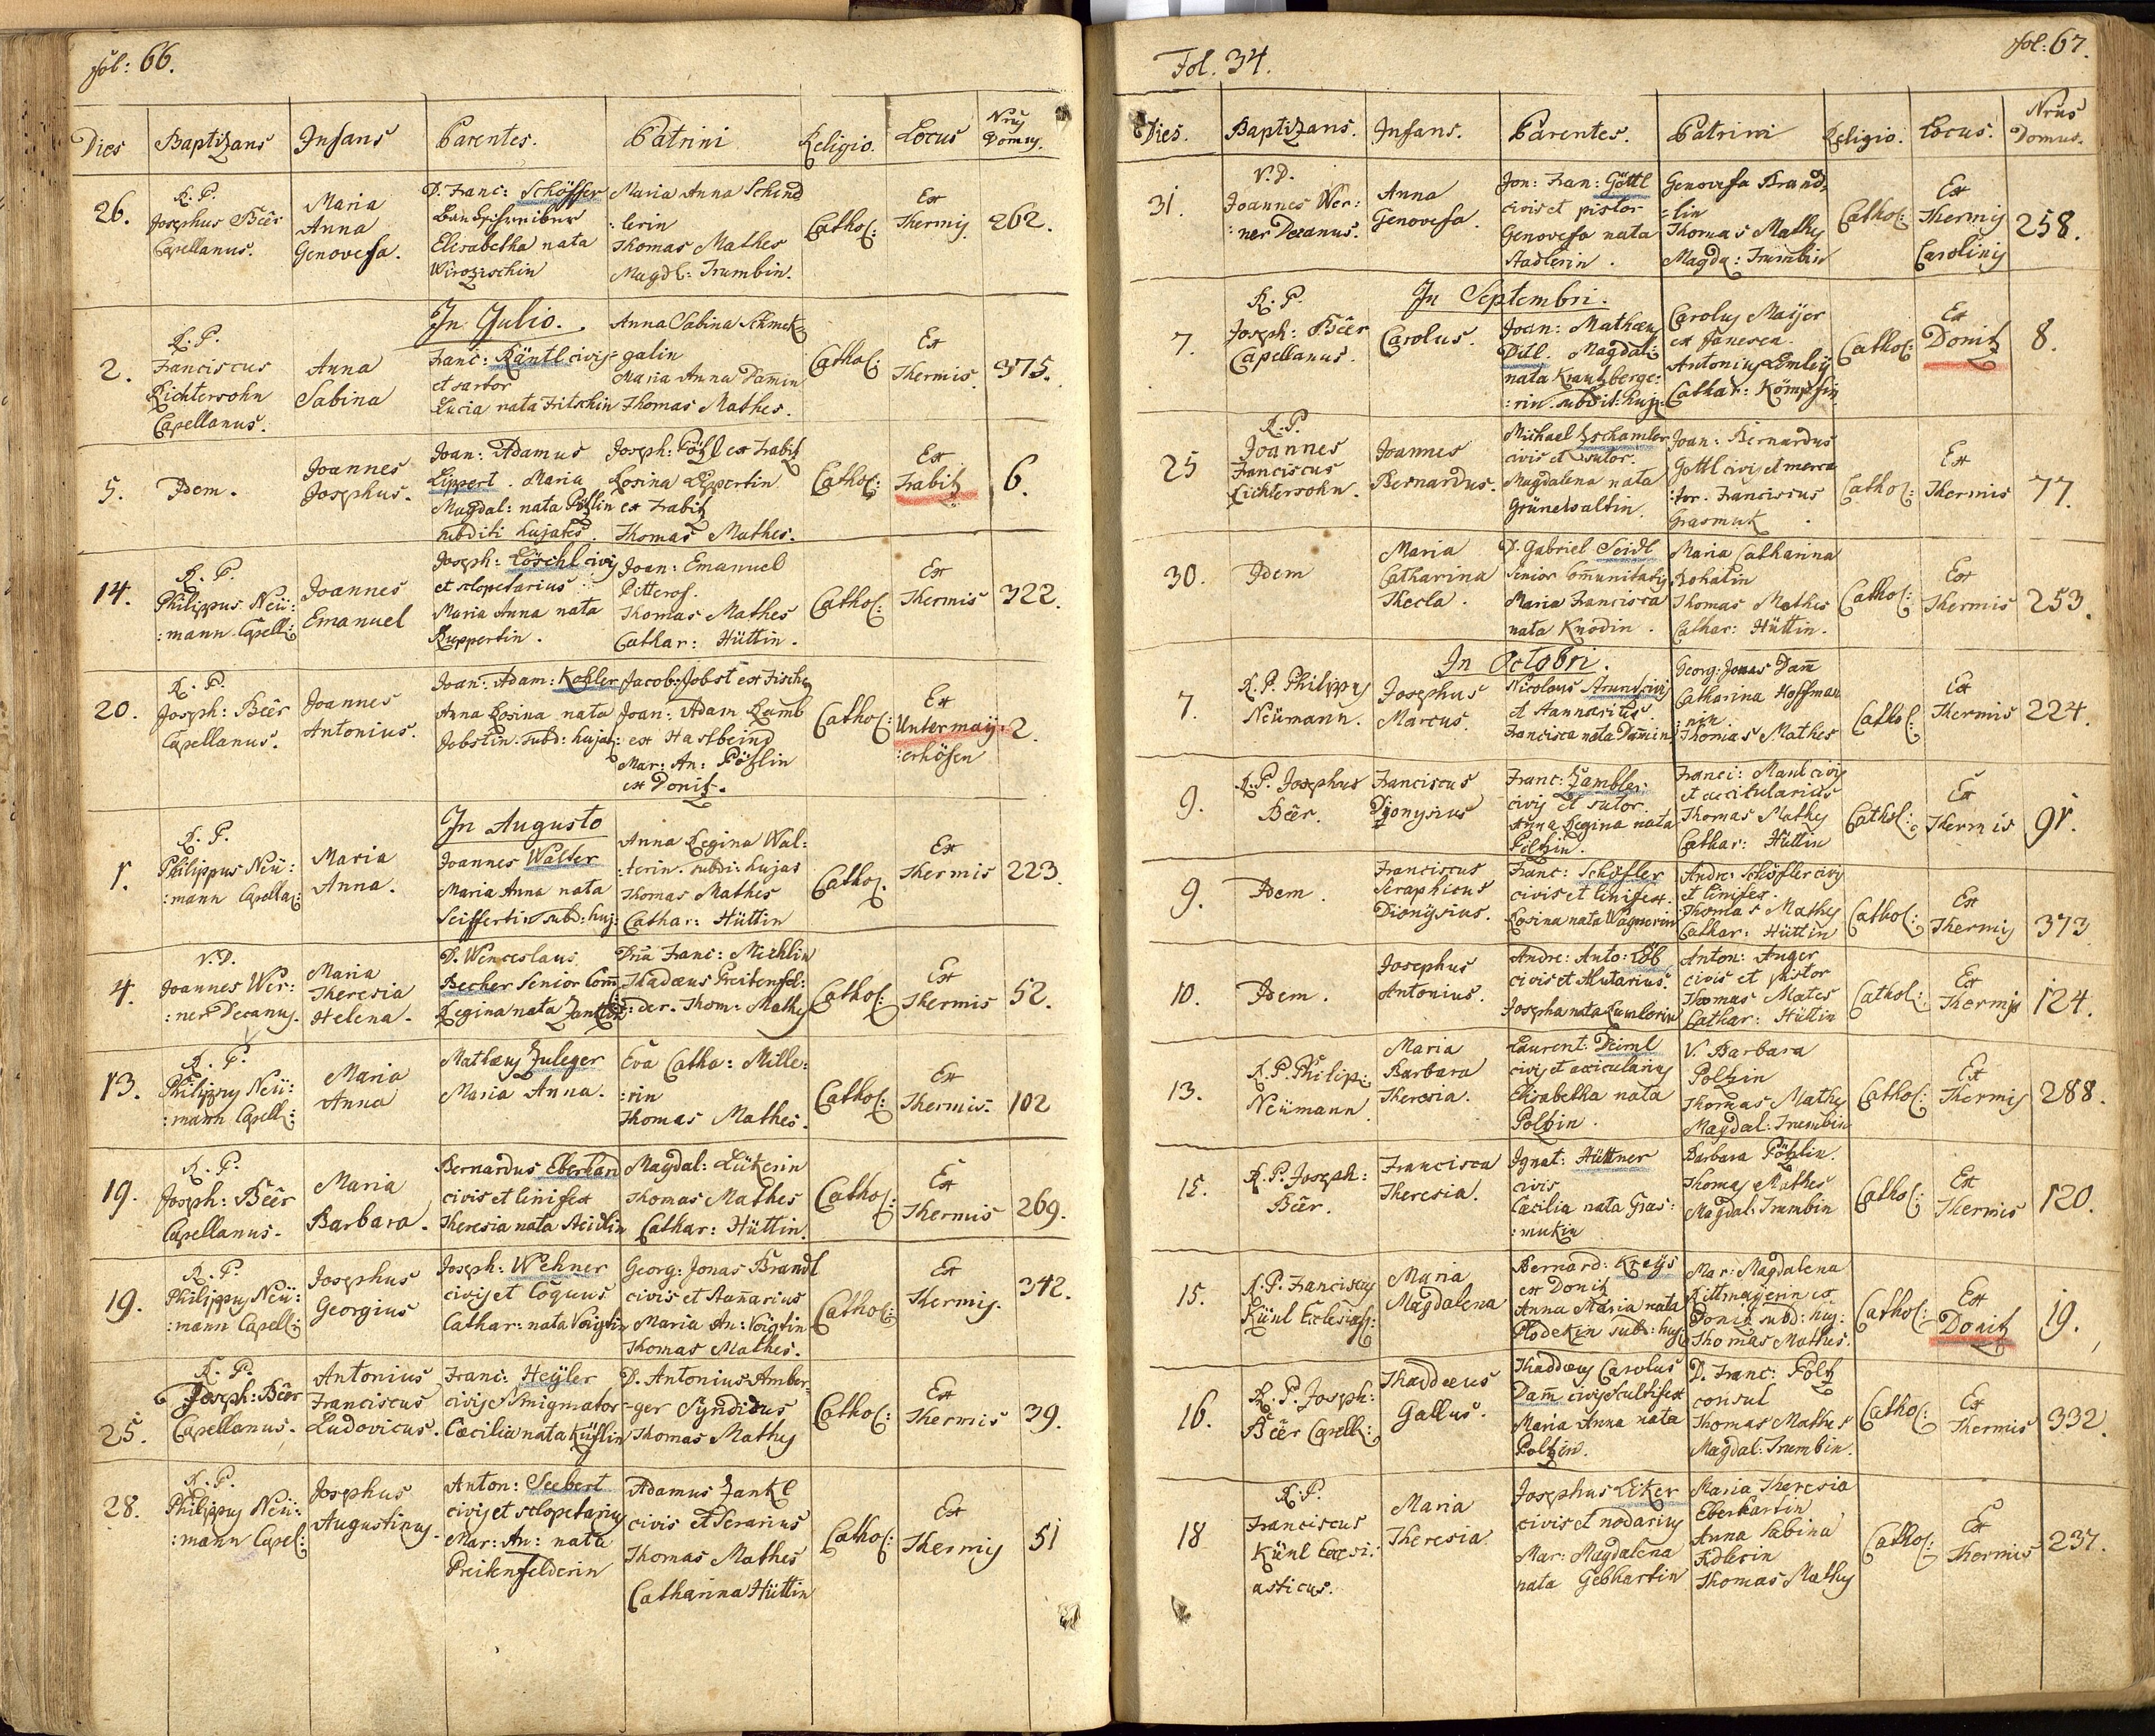 fol: 66.
Dies Baptizans Infans Parentes. Patrini Religio. Locus Nrus Domus.
26.
R. P.
Josephus Beêr
Capellanus.
Maria
Anna
Genovefa.
D. Franc: Schöffer
Elisabetha nata
Maria Anna Schind
:lerin
Thomas Mathes
Magdl: Trumbin.
Cathol:
Ex
Thermis
262.
In Julio.
2.
R. P.
Franciscus
Richtersohn
Capellanus.
Anna
Sabina
Franc: Käntl civis
et sartor
Lucia nata Fritschin
Anna Sabina
galin
Maria Anna Dam̄in
Thomas Mathes.
Cathol:
Ex
Thermis.
375.
5.
Idem.
Joannes
Josephus.
Joan: Adamus
Lippert. Maria
Magdal: nata Pözlin
subditi hujates.
Joseph: Pözl ex Trabitz
Rosina Lippertin
ex Trabitz
Thomas Mathes.
Cathol:
Ex
Trabitz
6.
14.
R. P.
Philippus Neü:
:mann Capell:
Joannes
Emanuel
Joseph: Löschl civis
et sclopetarius
Maria Anna nata
Ruppertin.
Joan: Emanuel
Pitterof.
Thomas Mathes
Cathar: Hüttin.
Cathol:
Ex
Thermis
322.
20.
R. P.
Joseph: Beêr
Capellanus.
Joannes
Antonius.
Joan: Adam: Kohler
Anna Rosina nata
Jobstin. subd: hujat:
Jacob: Jobst ex Fischern
Joan: Adam Lamb
ex
Mar: An: Pözlin
ex Donitz.
Cathol:
Ex
Untermayer:
:erhöfen
2.
In Augusto
1.
R. P.
Philippus Neü:
:mann Capella:
Maria
Anna.
Joannes Walter
Maria Anna nata
Seiffertin subd: huj:
Anna Regina Wal:
:terin. subdi: hujas
Thomas Mathes
Cathar: Hüttin
Cathol.
Ex
Thermis
223.
4.
V. D.
Joannes Wer:
:ner Decanus.
Maria
Theresia
Helena.
D. Wenceslaus
Becher Senior Com̄:
Regina nata
Dn̄a Franc: Michlin
Thadæus Preitenfel:
:der. Thom: Mathes
Cathol:
Ex
Thermis
52.
13.
R. P.
Philippus Neü:
:mann Capell:
Maria
Anna
Mathæus Zuleger
Maria Anna.
Eva Catha: Mille:
:rin
Thomas Mathes.
Cathol:
Ex
Thermis.
102
19.
R. P.
Joseph: Beêr
Capellanus.
Maria
Barbara.
Bernardus Eberhard
civis et linifex
Theresia nata
Magdal: Lükerin
Thomas Mathes
Cathar: Hüttin.
Cathol:
Ex
Thermis
269.
19.
R. P.
Philippus Neü:
:mann Capell:
Josephus
Georgius
Joseph: Wehner
civis et Coquus
Cathar: nata Voigtin
Georg: Jonas Brandl
civis et Stan̄arius
Maria An: Voigtin
Thomas Mathes.
Cathol:
Ex
Thermis.
342.
25.
R. P.
Joseph: Beêr
Capellanus.
Antonius
Franciscus
Ludovicus.
Franc: Heÿler
civis Smigmator
Cæcilia nata
D. Antonius Amber:
:ger Sÿndicus
Thomas Mathes
Cathol:
Ex
Thermis
39.
28.
R. P.
Philippus Neü:
:mann Capel:
Josephus
Augustinus.
Anton: Seebert
civis et sclopetarius
Mar: An: nata
Preitenfelderin
Adamus Zankl
civis et Serarius
Thomas Mathes
Catharina Hüttin
Cathol:
Ex
Thermis
51
Fol. 34.
fol: 67.
Dies. Baptizans. Infans. Parentes. Patrini Religio. Locus. Nrus Domus.
31.
V. D.
Joannes Wer:
:ner Decanus.
Anna
Genovefa.
Jon: Fran: Göttl
civis et pistor
Genovefa nata
Stadlerin.
Genovefa Brand:
:lin
Thomas Mathes
Magda: Trumbin
Cathol:
Ex
Thermis
Carolinis
258.
In Septembri.
7.
R. P.
Joseph: Beêr
Capellanus.
Carolus.
Joan: Mathæus
Ditl. Magdal:
nata Krautzberge:
:rin. subdit: huj:
Carolus Maÿer
ex Janesca.
Antonius Lemleÿ
Cathar: Kömpfin
Cathol:
Ex
Donitz
8.
25
R. P.
Joannes
Franciscus
Richtersohn.
Joannes
Bernardus.
Michael Tschamler
civis et sutor.
Magdalena nata
Grünewaltin.
Joan: Bernardus
Gottl civis et merca
:tor. Franciscus
Grasmuk
Cathol:
Ex
Thermis
77.
30.
Idem
Maria
Catharina
Thecla.
D. Gabriel Seidl
Senior Com̄unitatis
Maria Francisca
nata Knodin.
Maria Catharina
Thomas Mathes
Cathar: Hüttin.
Cathol:
Ex
Thermis
253.
In Octobri.
7.
R. P. Philippus
Neümann.
Josephus
Marcus.
Nicolaus
et Stannarius
Francisca nata Dam̄in
Georg: Jonas Dam̄
Catharina Hoffman
:nin.
Thomas Mathes
Cathol:
Ex
Thermis
224.
9.
R. P. Josephus
Beêr.
Franciscus
Dionysius
Franc: Zambler
civis et sutor.
Anna Regina nata
Pilzin.
Franci: Manl civis
et acicularius
Thomas Mathes
Cathar: Hüttin
Cathol:
Ex
Thermis
91.
9.
Idem.
Franciscus
Seraphicus
Dionÿsius.
Franc: Schöfler
civis et linifex.
Rosina nata Wagnerin
Andre: Schöfler civis
et linifex.
Thomas Mathes
Cathar: Hüttin
Cathol:
Ex
Thermis
373
10.
Idem.
Josephus
Antonius.
Andre: Anto: Löb
civis et Alutarius.
Josepha nata
Anton: Anger
civis et pistor
Thomas Mates
Cathar: Hüttin
Cathol:
Ex
Thermis
124.
13.
R. P. Philip:
Neümann
Maria
Barbara
Theresia.
Laurent: Deiml
civis et acicularius
Elisabetha nata
Polzin.
V. Barbara
Polzin
Thomas Mathes
Magdal: Trumbin
Cathol:
Ex
Thermis
288.
15.
R. P. Joseph:
Beêr.
Francisca
Theresia.
Ignat: Hüttner
civis
Cæcilia nata Gras:
:mukin
Barbara Pözlin.
Thomas Mathes
Magdal: Trumbin
Cathol:
Ex
Thermis
120.
15.
R. P. Franciscus
Künl Eclesias:
Maria
Magdalena
Bernard: Kreÿs
ex Donitz
Anna Maria nata
Plodekin subd: huj:
Mar: Magdalena
Rittmayerin ex
Donitz subd: huj:
Thomas Mathes.
Cathol:
Ex
Donitz
19.
16.
R. P. Joseph:
Beêr Capell:
Thaddæus
Gallus.
Thaddæus Carolus
Dam̄ civis Cultrifex
Maria Anna nata
Polzin.
D. Franc: Polz
consul
Thomas Mathes
Magdal: Trumbin.
Cathol:
Ex
Thermis
332.
18
R. P.
Franciscus
Künl Eclesi:
asticus.
Maria
Theresia.
Josephus Liker
civis et nodarius
Mar: Magdalena
nata Gebhartin
Maria Theresia
Eberhartin
Anna Sabina
Adlerin
Thomas Mathes
Cathol:
Ex
Thermis
237.